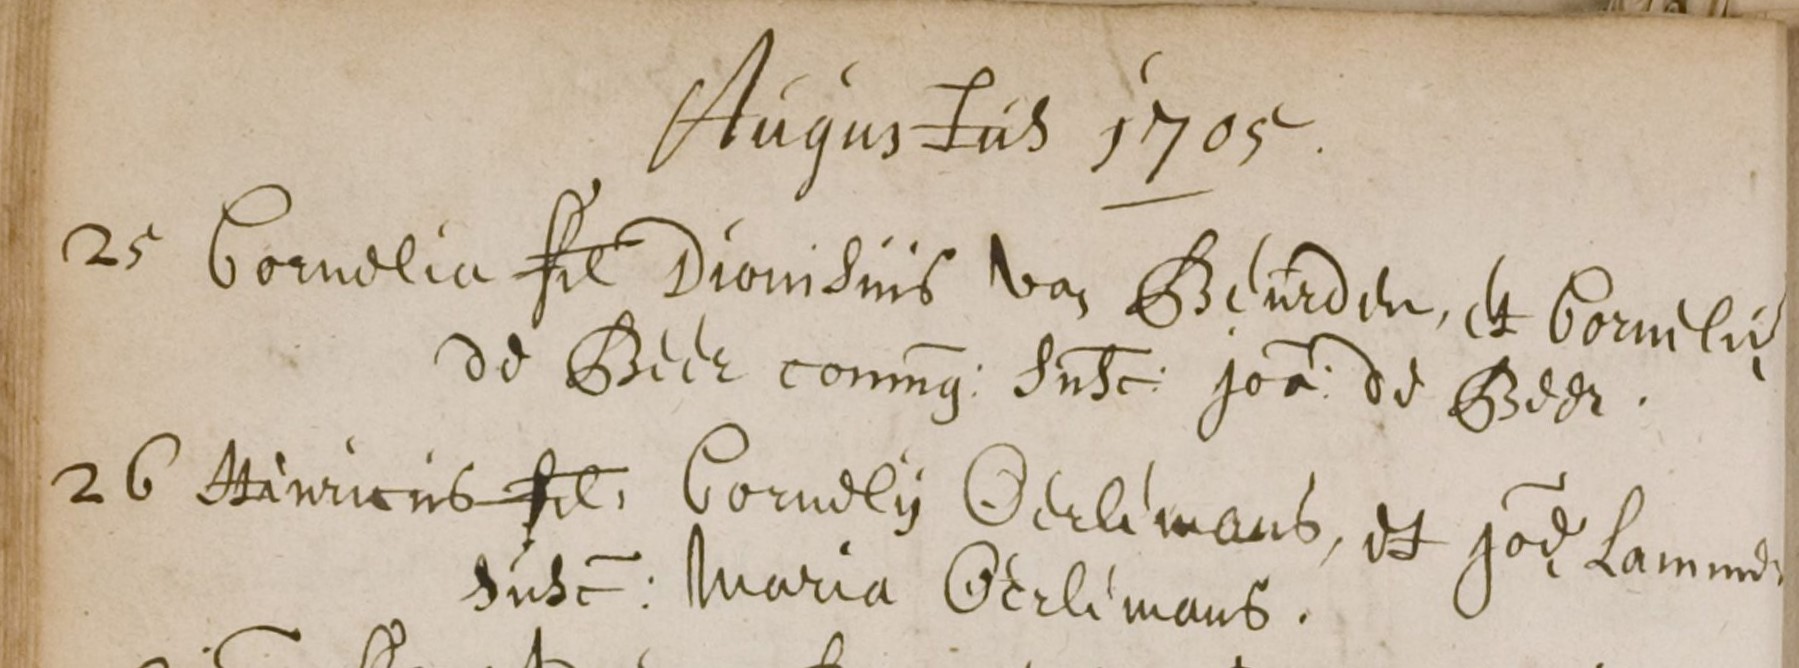 Augustus 1705.
25 Cornelia fil Dionisius van Beurden, et Cornelię
de Beer coniug: Susc: joa: de Beer.
26 Hinricus fil. Cornelij Oerlemans, et joę
Susc: Maria Oerlemans.